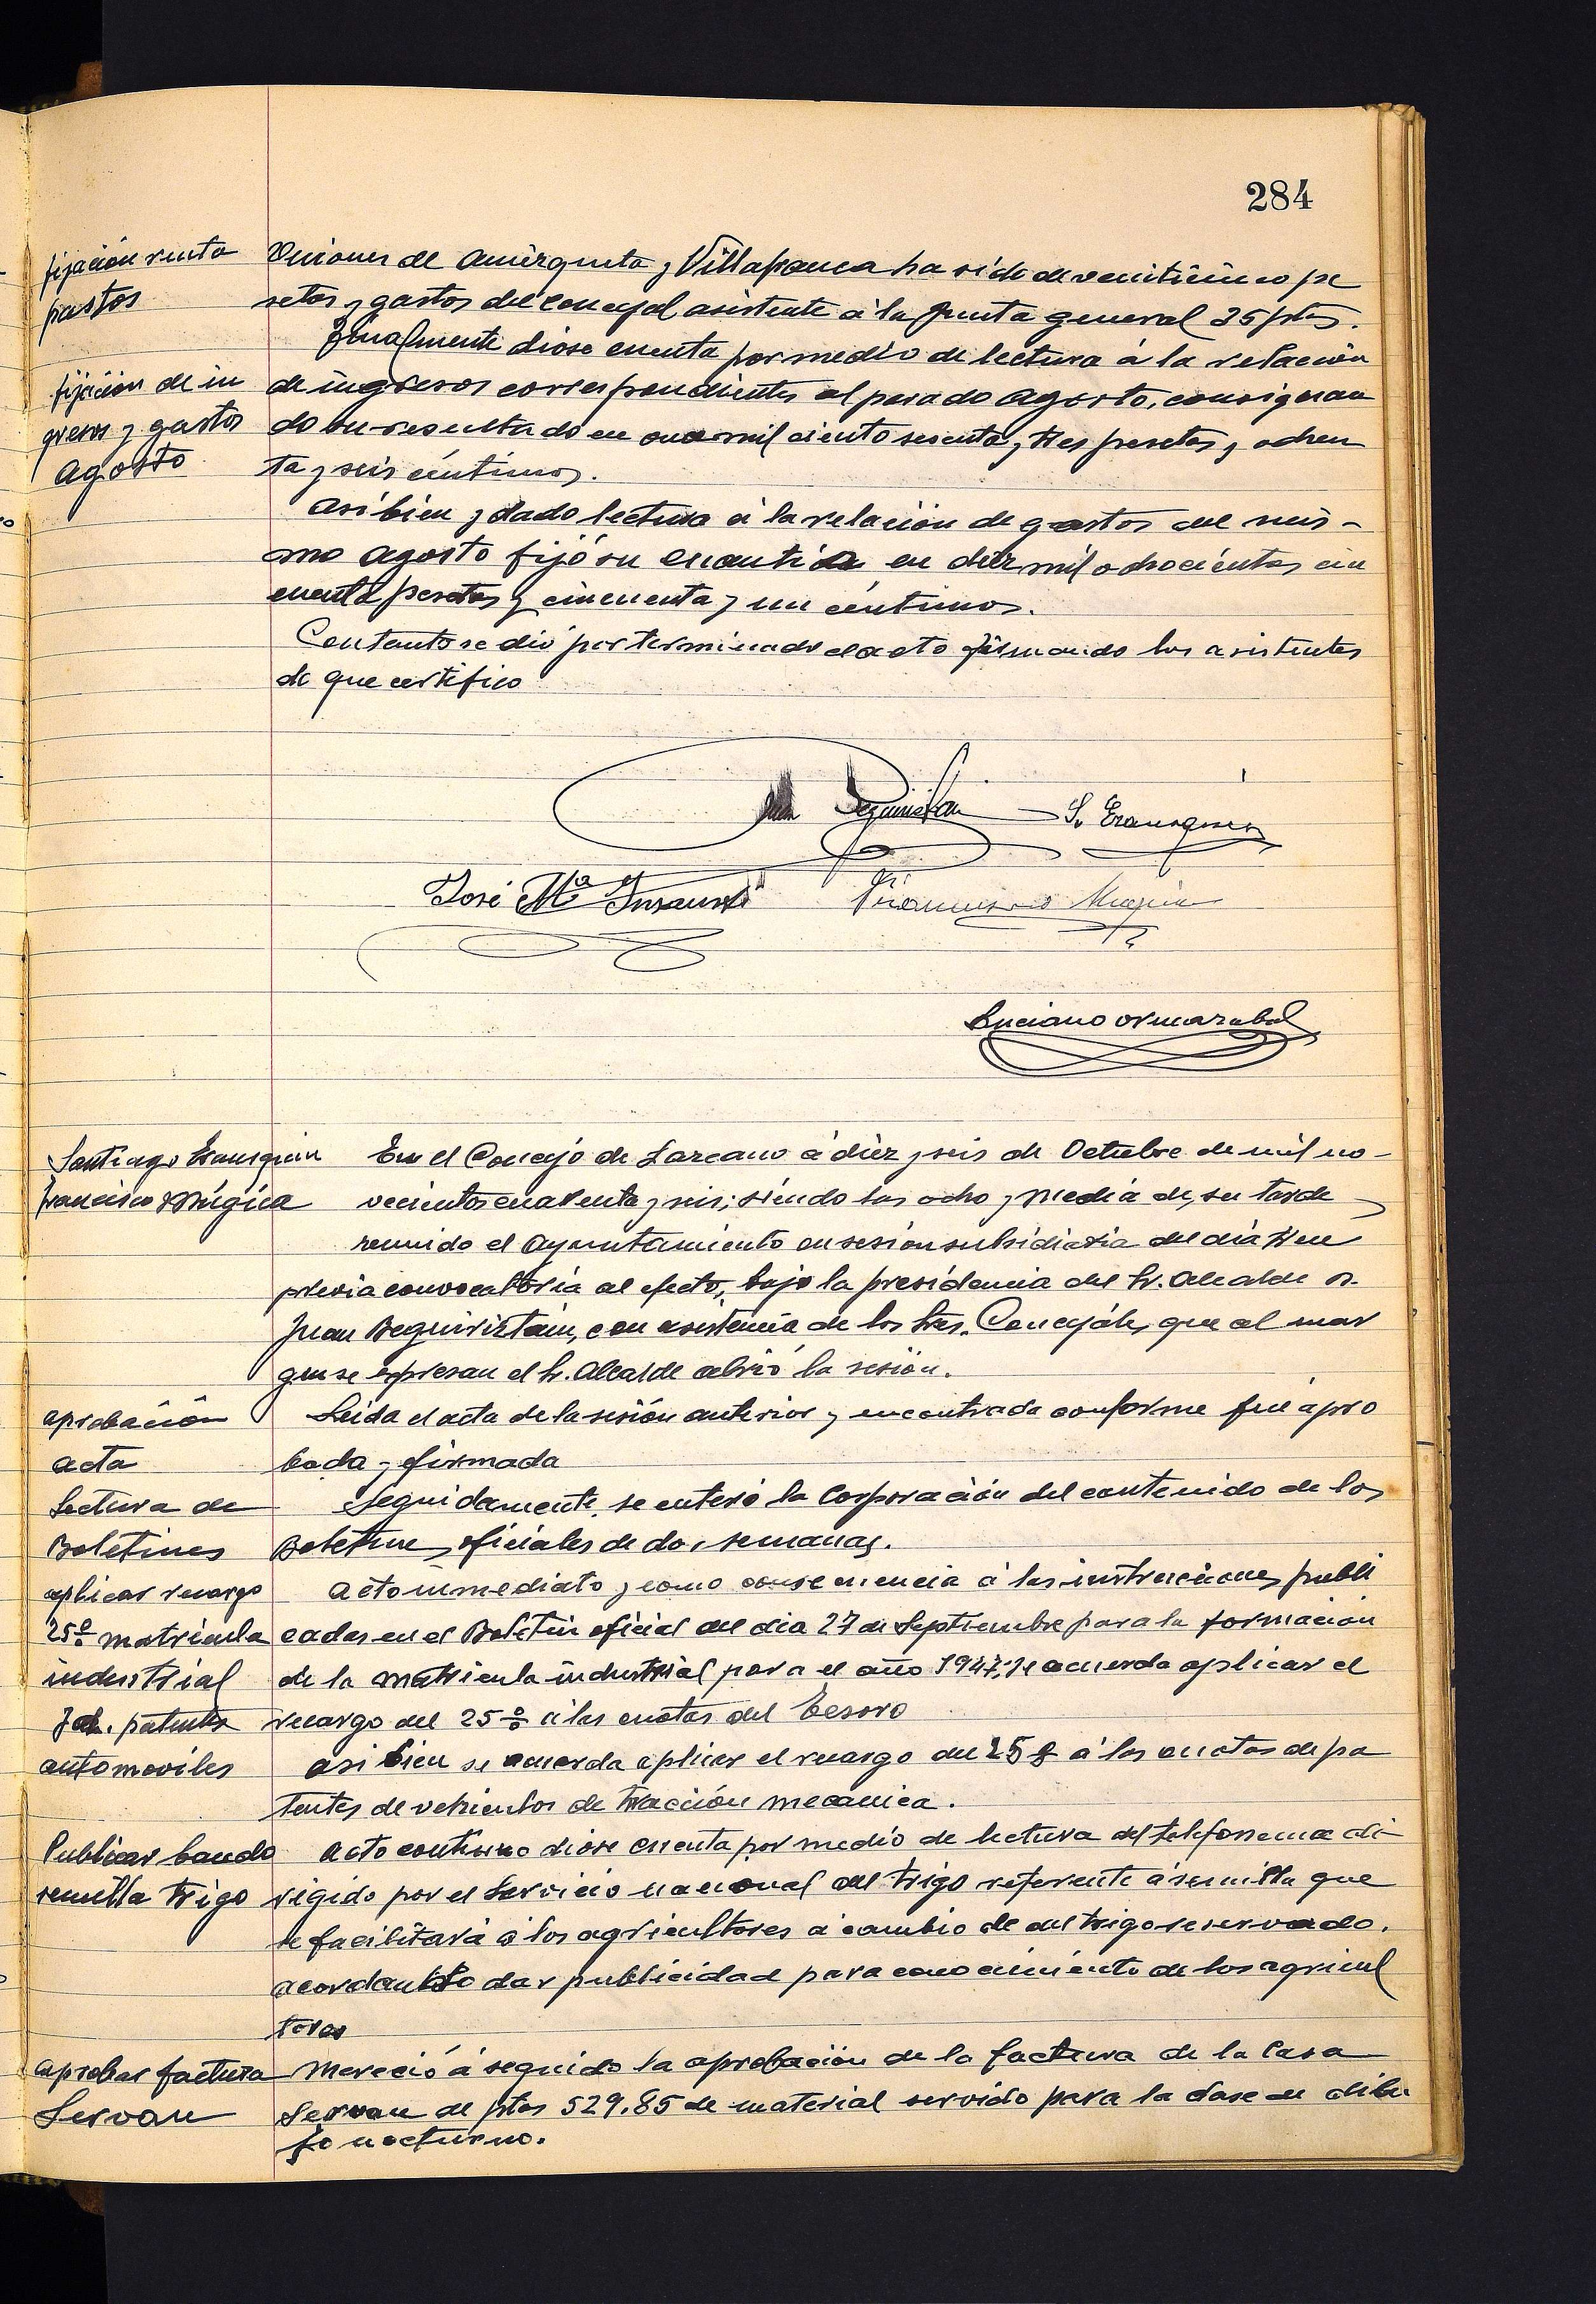 284
fijación renta
pastos
Uniones de Amézqueta y Villafranca ha sido de veinticinco pe
setas y gastos del concejal asistente á la Junta general 35 ptas.
Finalmente dióse cuenta por medio de lectura á la relación
fijación de in
gresos y gastos
Agosto
de ingresos correspondientes al pasado Agosto, consignan
do su resultado en once mil ciento sesenta y tres pesetas y ochen
ta y seis céntimos.
Así bien y dado lectura á la relación de gastos del mis-
mo Agosto fijó su cuantía en diez mil ochocientas cin
cuenta pesetas y cincuenta y un céntimos.
Con tanto se dió por terminado el acto firmando los asistentes
de que certifico
Juan Beguiristain
S. Eransquin
José Mª Insausti
Francisco Mugica
Luciano Ormazabal
Santiago Eransquin
Francisco Múgica
En el Concejo de Lazcano á diez y seis de Octubre de mil no-
vecientos cuarenta y seis; siendo las ocho y media de su tarde
reunido el Ayuntamiento en sesión subsidiaria del día trece
previa convocatoria al efecto, bajo la presidencia del Sr. Alcalde D.
Juan Beguiristain, con asistencia de los Sres. Concejales que al mar
gen se expresan el Sr. Alcalde abrió la sesión.
aprobación
acta
Leída el acta de la sesión anterior y encontrada conforme fué apro
bada y firmada
Lectura de
Boletines
Seguidamente se enteró la Corporación del contenido de los
Boletines oficiales de dos semanas.
aplicar recargo
25% matricula
industrial
Id. patentes
automoviles
Acto inmediato y como consecuencia á las instrucciones publi
cadas en el Boletin oficial del dia 27 de Septiembre para la formación
de la matricula industrial para el año 1947, se acuerda aplicar el
recargo del 25% á las cuotas del Tesoro
Asi bien se acuerda aplicar el recargo del 25% á las cuotas de pa
tentes de vehiculos de tracción mecanica.
Publicar bando
semilla trigo
Acto continuo dióse cuenta por medio de lectura del telefonema di-
rigido por el Servicio nacional del trigo referente á semilla que
se facilitará á los agricultores á cambio de del trigo reservado.
acordando dar publicidad para conocimiento de los agricul
tores
aprobar factura
Servan
Mereció á seguido la aprobación de la factura de la Casa
Servan de ptas 529.85 de material servido para la clase de dibu
jo nocturno.